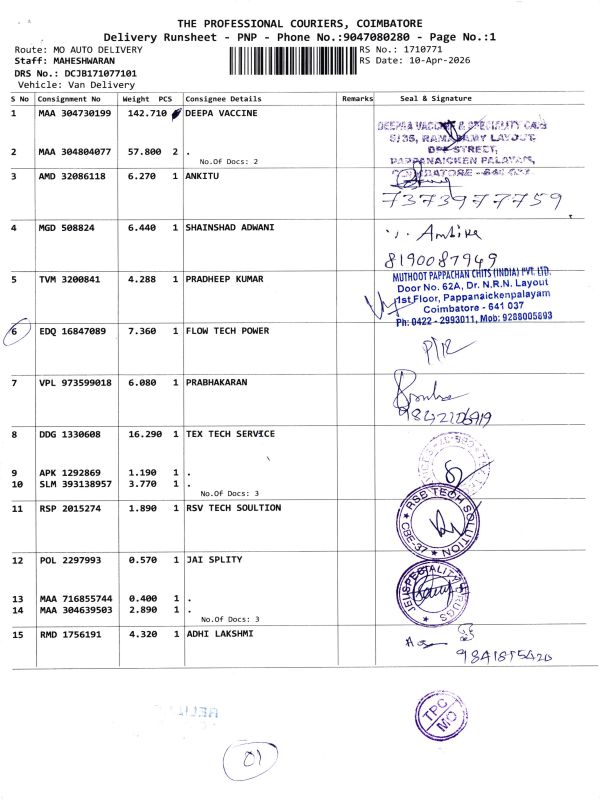 THE PROFESSIONAL COURIERS, COIMBATORE
Delivery Runsheet - PNP - Phone No.:9047080280 - Page No.:1
Route: MO AUTO DELIVERY RS No.: 1710771
Staff: MAHESHWARAN RS Date: 10-Apr-2026
DRS No.: DCJB171077101
Vehicle: Van Delivery
S No Consignment No Weight PCS Consignee Details Remarks Seal & Signature
1 MAA 304730199 142.710 DEEPA VACCINE
DEEPEA VACCINE & SPECIALITY CARE
5/35, RAMASAMY LAYOUT,
2 MAA 304804077 57.800 2 .
STREET,
No.Of Docs: 2
PAPPANAICKEN PALAYAM,
3 AMD 32086118 6.270 1 ANKITU
COIMBATORE - 641 037.
7373977759
4 MGD 508824 6.440 1 SHAINSHAD ADWANI
Ambika
8190087949
5 TVM 3200841 4.288 1 PRADHEEP KUMAR
MUTHOOT PAPPACHAN CHITS (INDIA) PVT. LTD.
Door No. 62A, Dr. N.R.N. Layout
1st Floor, Pappanaickenpalayam
Coimbatore - 641 037
Ph: 0422 - 2993011, Mob: 9288005893
6 EDQ 16847089 7.360 1 FLOW TECH POWER
7 VPL 973599018 6.080 1 PRABHAKARAN
8 DDG 1330608 16.290 1 TEX TECH SERVICE
9 APK 1292869 1.190 1 .
10 SLM 393138957 3.770 1 .
No.Of Docs: 3
11 RSP 2015274 1.890 1 RSV TECH SOULTION
RSB TECH SOLUTION
CBE-37
12 POL 2297993 0.570 1 JAI SPLITY
13 MAA 716855744 0.400 1 .
14 MAA 304639503 2.890 1 .
No.Of Docs: 3
15 RMD 1756191 4.320 1 ADHI LAKSHMI
TPC
MO
01